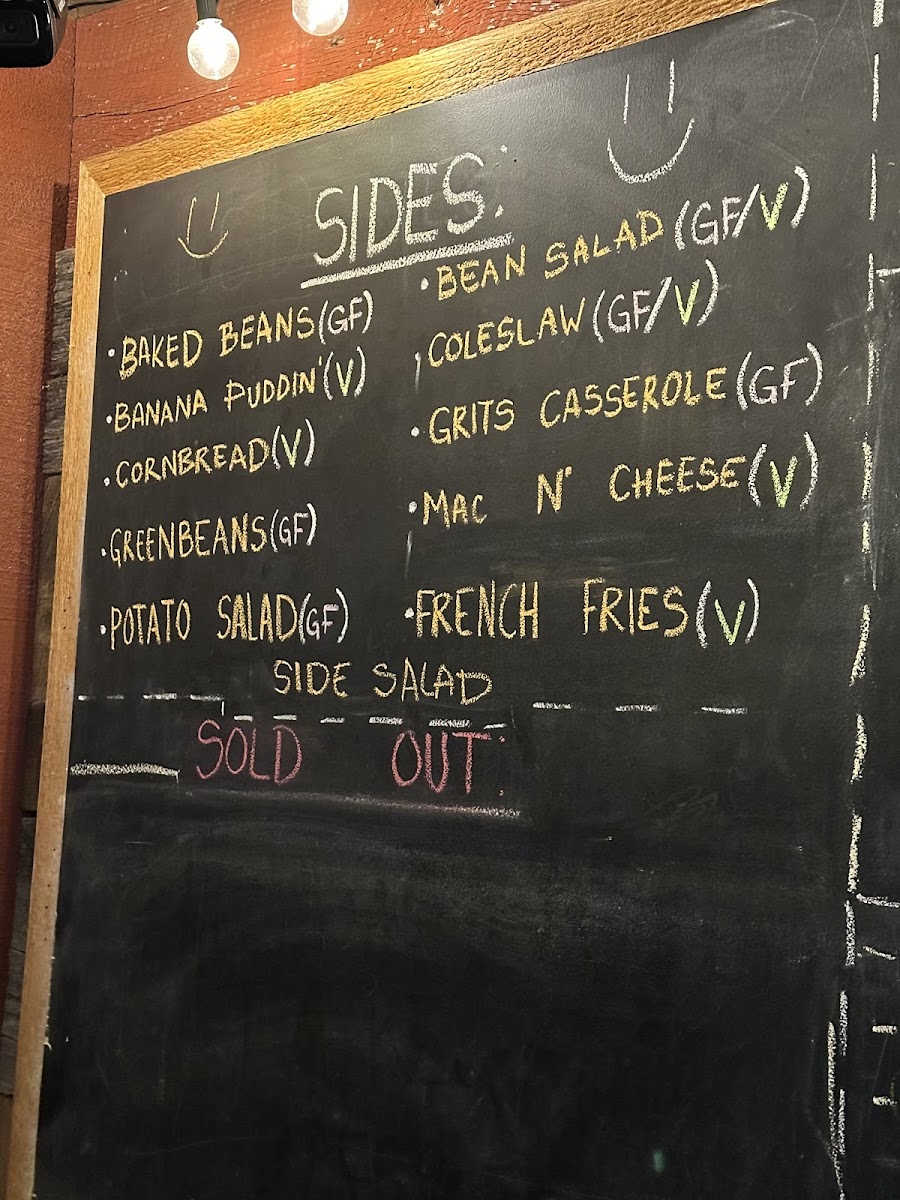 SIDES:
BAKED BEANS(GF)
BANANA PUDDIN'(V)
CORNBREAD(V)
GREENBEANS(GF)
POTATO SALAD(GF)
BEAN SALAD(GF/V)
COLESLAW(GF/V)
GRITS CASSEROLE(GF)
MAC N' CHEESE(V)
FRENCH FRIES(V)
SIDE SALAD
SOLD OUT: